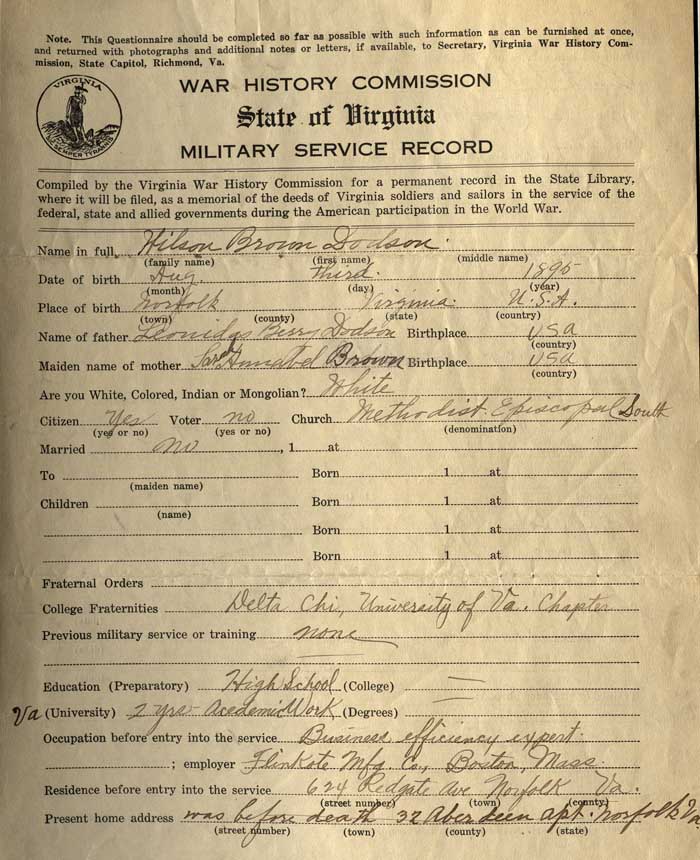 Note. This Questionnaire should be completed so far as possible with such information as can be furnished at once,
and returned with photographs and additional notes or letters, if available, to Secretary, Virginia War History Com-
mission, State Capitol, Richmond, Va.
VIRGINIA
SIC SEMPER TYRANNIS
WAR HISTORY COMMISSION
State of Virginia
MILITARY SERVICE RECORD
Compiled by the Virginia War History Commission for a permanent record in the State Library,
where it will be filed, as a memorial of the deeds of Virginia soldiers and sailors in the service of the
federal, state and allied governments during the American participation in the World War.
Name in full Wilson Brown Dodson
(family name) (first name) (middle name)
Date of birth Aug. third. 1895
(month) (day) (year)
Place of birth Norfolk Virginia U.S.A.
(town) (county) (state) (country)
Name of father Leonidas Berry Dodson Birthplace USA
(country)
Maiden name of mother Annabel Brown Birthplace USA
(country)
Are you White, Colored, Indian or Mongolian? White
Citizen Yes Voter no Church Methodist Episcopal South
(yes or no) (yes or no) (denomination)
Married no , 1 at
To Born 1 at
(maiden name)
Children Born 1 at
(name)
Born 1 at
Born 1 at
Fraternal Orders
College Fraternities Delta Chi, University of Va. Chapter
Previous military service or training none
Education (Preparatory) High School (College) —
Va (University) 2 yrs Academic Work (Degrees) —
Occupation before entry into the service Business efficiency expert.
; employer Flinkote Mfg Co., Boston, Mass.
Residence before entry into the service 624 Redgate Ave Norfolk Va.
(street number) (town) (county)
Present home address was before death 32 Aberdeen apt. Norfolk Va
(street number) (town) (county) (state)